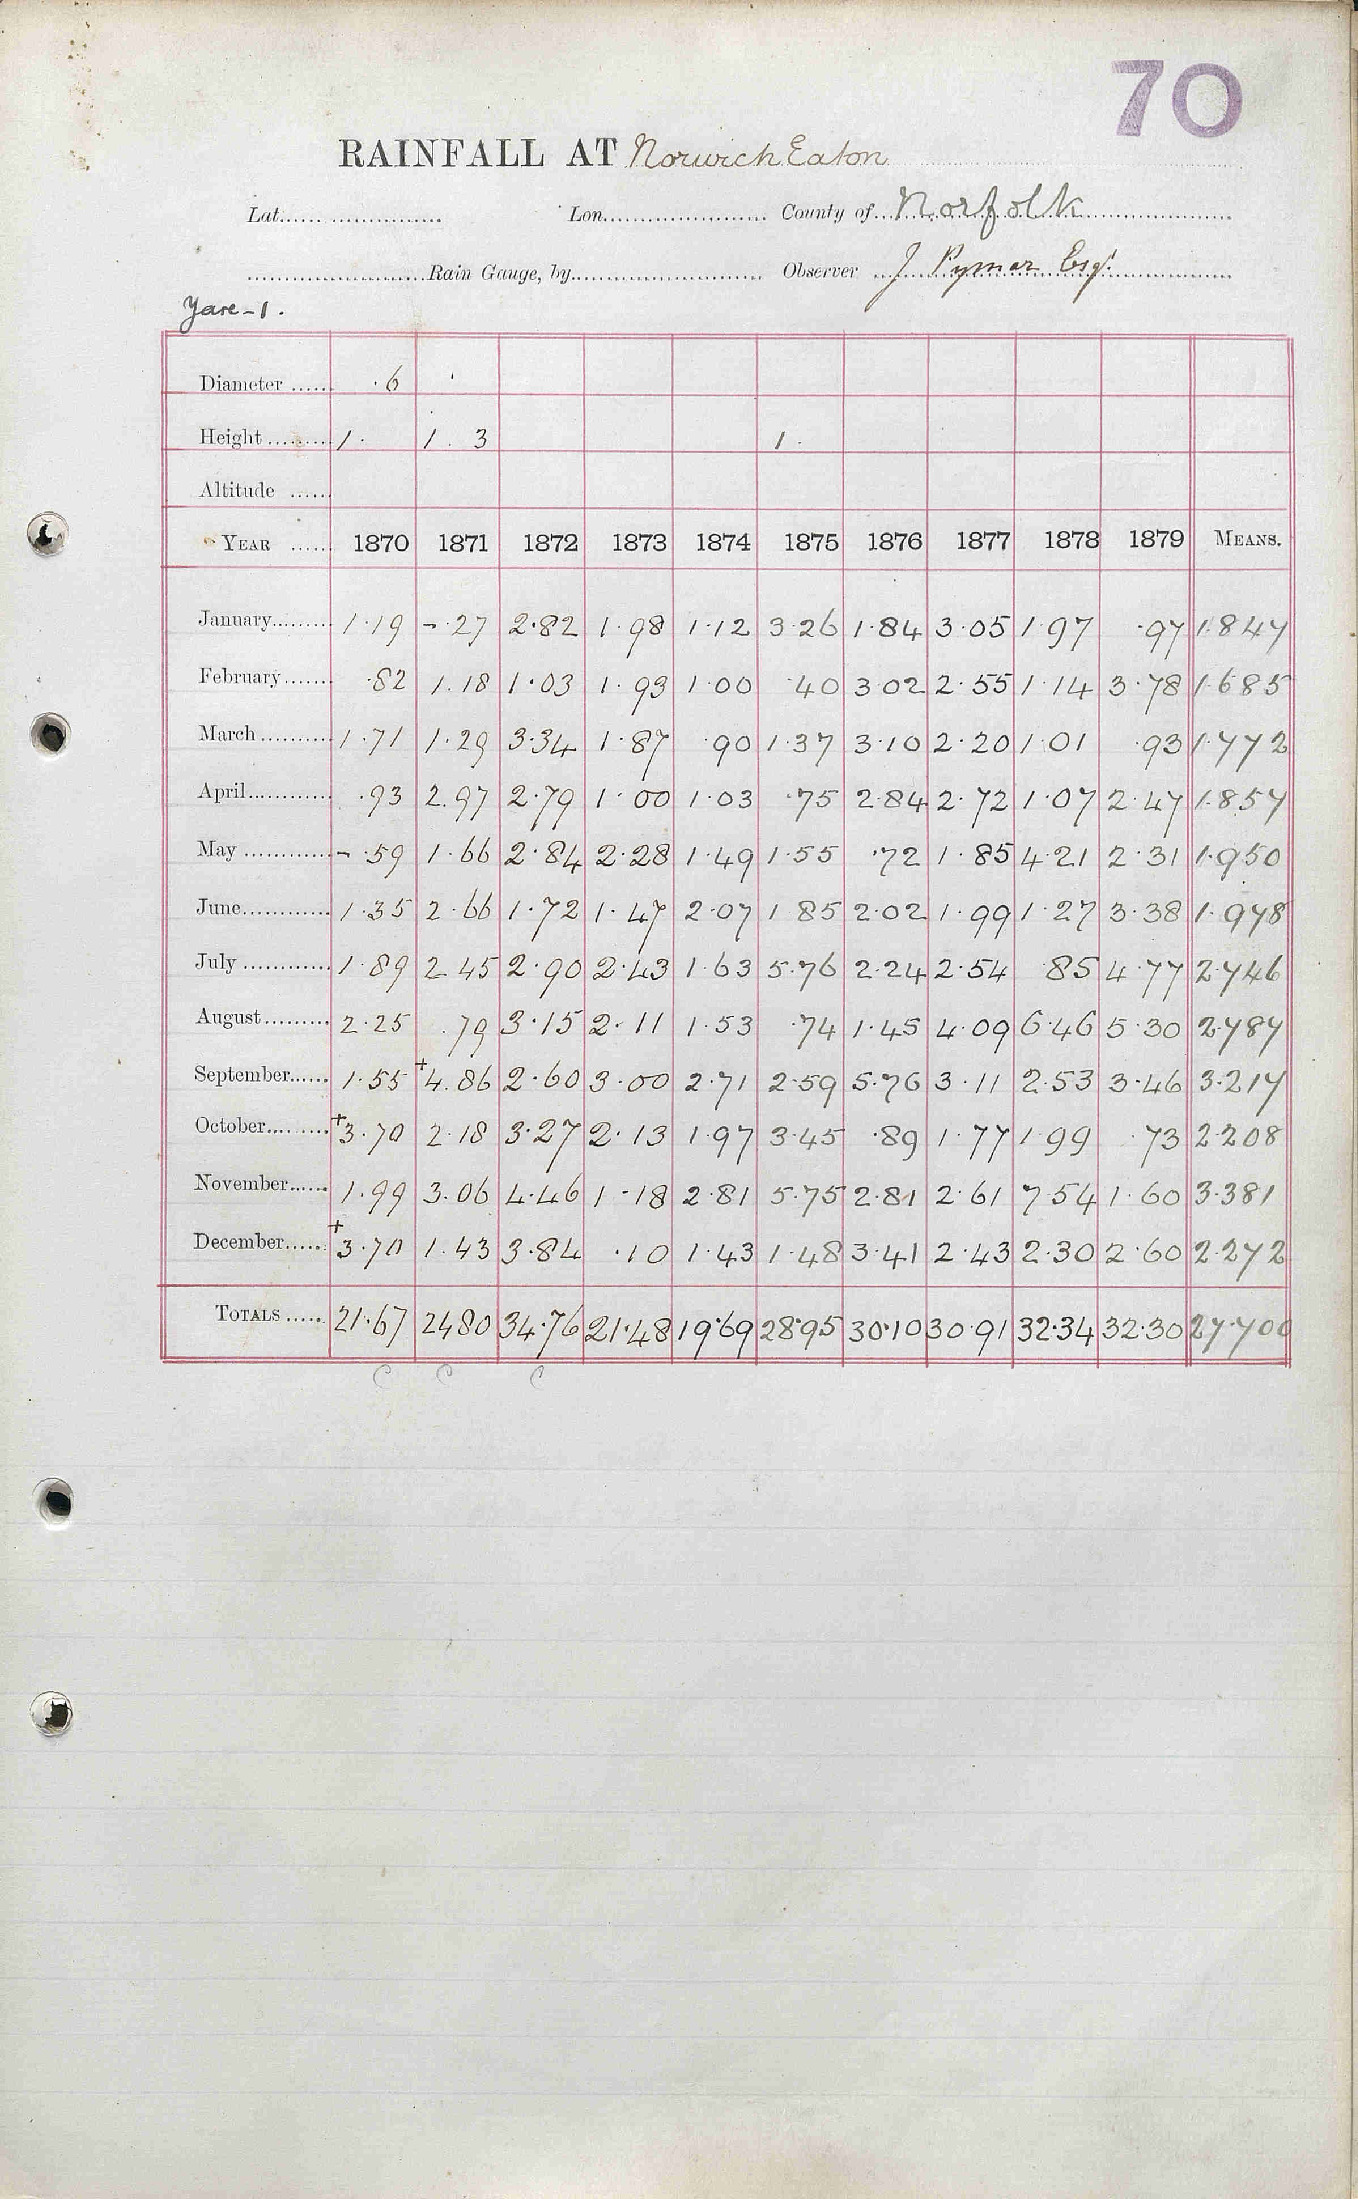 70
RAINFALL AT Norwich Eaton
Lat. Lon. County of Norfolk
Rain Gauge, by Observer J Pymar Esqr.
Yare-1.
Diameter ·6
Height 1· 1. 3 1.
Altitude
YEAR 1870 1871 1872 1873 1874 1875 1876 1877 1878 1879 MEANS.
January 1·19 -·27 2·82 1·98 1·12 3·26 1·84 3·05 1·97 ·97 1·847
February ·82 1.18 1·03 1·93 1·00 ·40 3·02 2·55 1·14 3·78 1·685
March 1·71 1·29 3·34 1·87 ·90 1·37 3·10 2·20 1·01 ·93 1·772
April ·93 2.97 2·79 1·00 1·03 ·75 2·84 2·72 1·07 2·47 1·857
May -·59 1·66 2·84 2·28 1·49 1·55 ·72 1·85 4·21 2·31 1·950
June 1·35 2·66 1·72 1·47 2·07 1·85 2·02 1·99 1·27 3·38 1·978
July 1·89 2·45 2·90 2·43 1·63 5·76 2·24 2·54 85 4·77 2·746
August 2·25 .79 3·15 2·11 1·53 ·74 1·45 4·09 6·46 5·30 2·787
September 1·55 +4.86 2·60 3·00 2·71 2·59 5·76 3·11 2·53 3·46 3·217
October +3·70 2·18 3·27 2·13 1·97 3·45 ·89 1·77 1·99 ·73 2·208
November 1·99 3·06 4·46 1·18 2·81 5·75 2·81 2·61 7·54 1·60 3·381
December +3·70 1·43 3·84 ·10 1·43 1·48 3·41 2·43 2·30 2·60 2·272
TOTALS 21·67 24 80 34·76 21·48 19·69 28·95 30·10 30·91 32·34 32·30 27·700
C C C